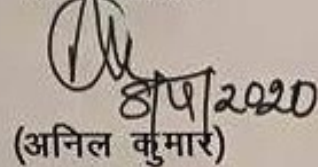 8/4/2020
(अनिल कुमार)